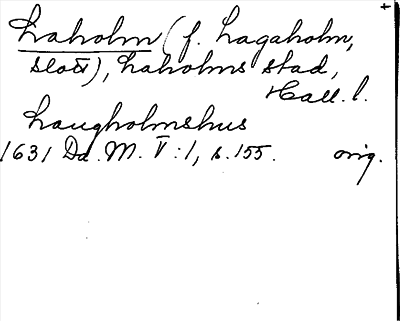 Laholm (f. Lagaholm,
slott), Laholms stad,
Hall. l.
Laugholmshus
1631 Da. M. V:1, s. 155. orig.